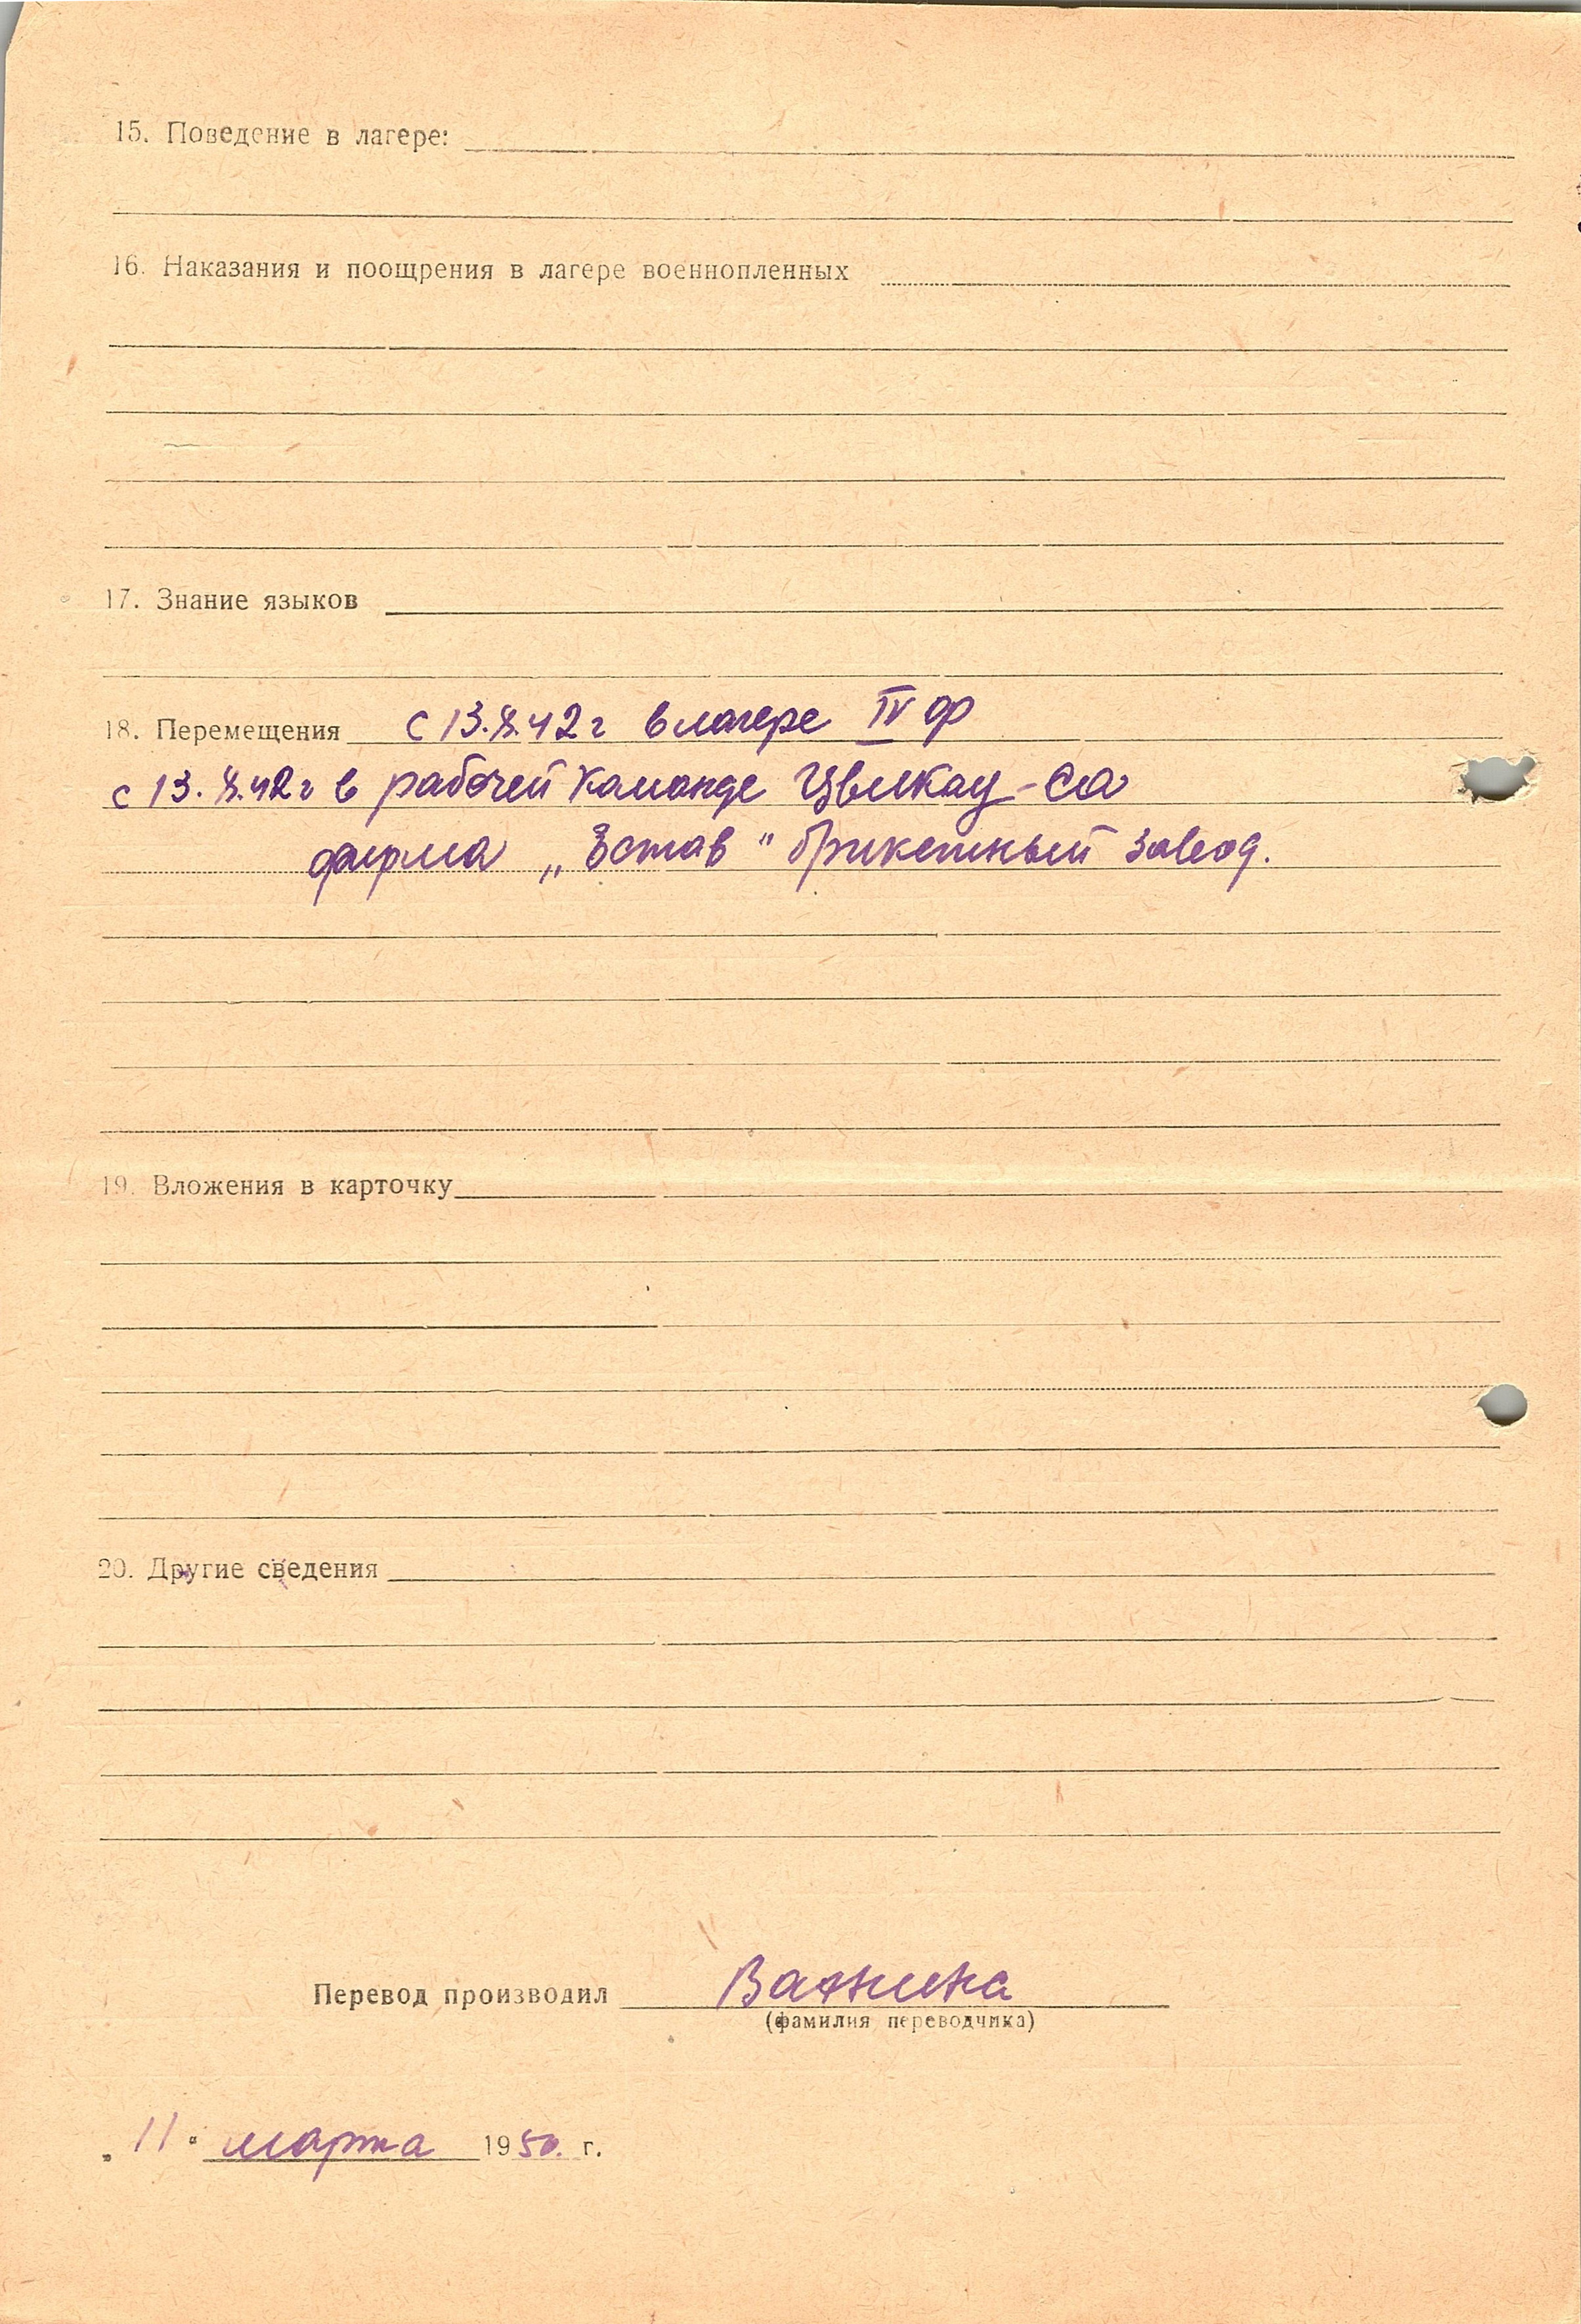 15. Поведение в лагере:
16. Наказания и поощрения в лагере военнопленных
17. Знание языков
18. Перемещения с 13.X.42 г в лагере IV ф
с 13.X.42 г в рабочей команде Цвикау-Са
фирма „Эстав" брикетный завод.
19. Вложения в карточку
20. Другие сведения
Перевод производил Важнина
(фамилия переводчика)
„11" марта 1950. г.